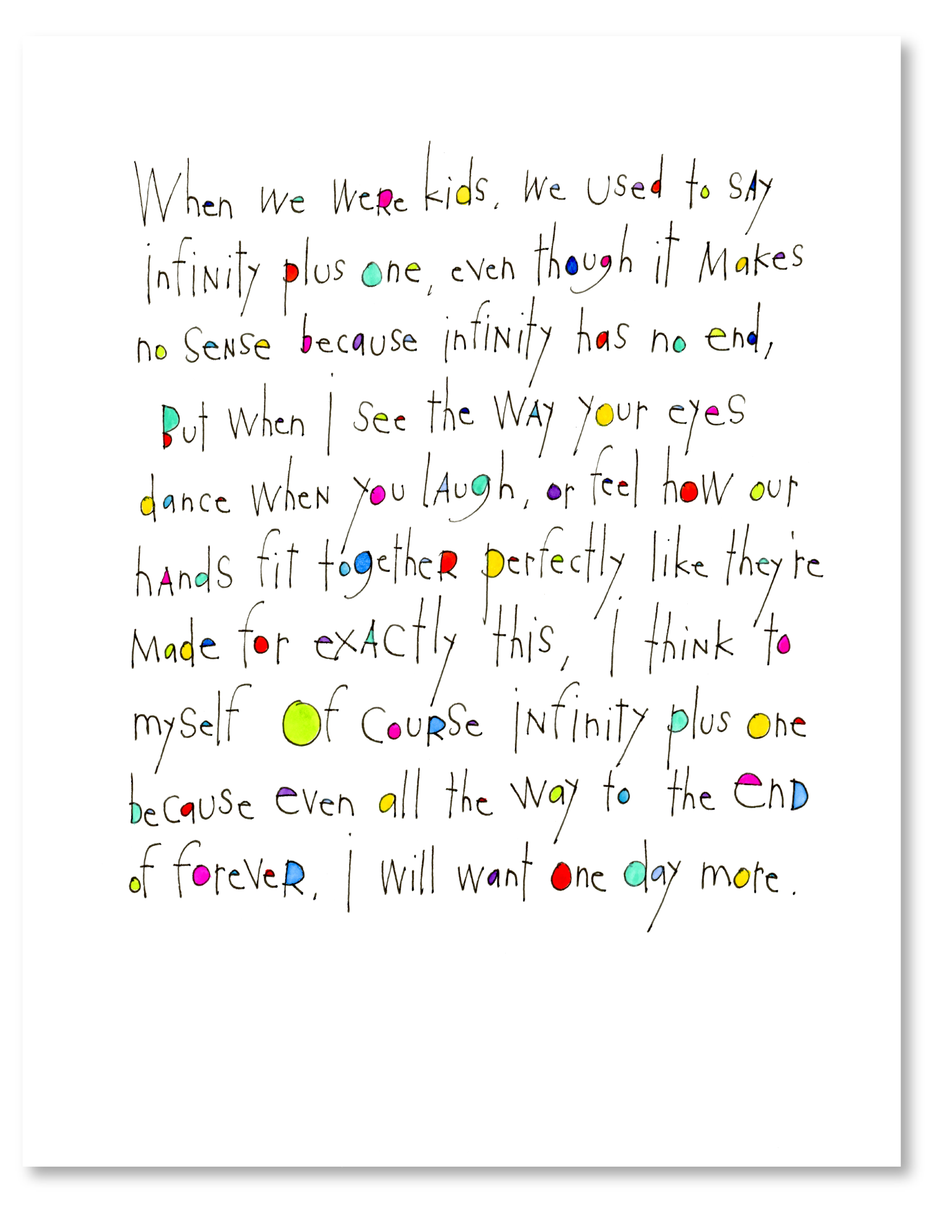 When we were kids, we used to say
infinity plus one, even though it makes
no sense because infinity has no end,
But when I see the way your eyes
dance when you laugh, or feel how our
hands fit together perfectly like they're
made for exactly this, I think to
myself Of course infinity plus one
because even all the way to the end
of forever, I will want one day more.